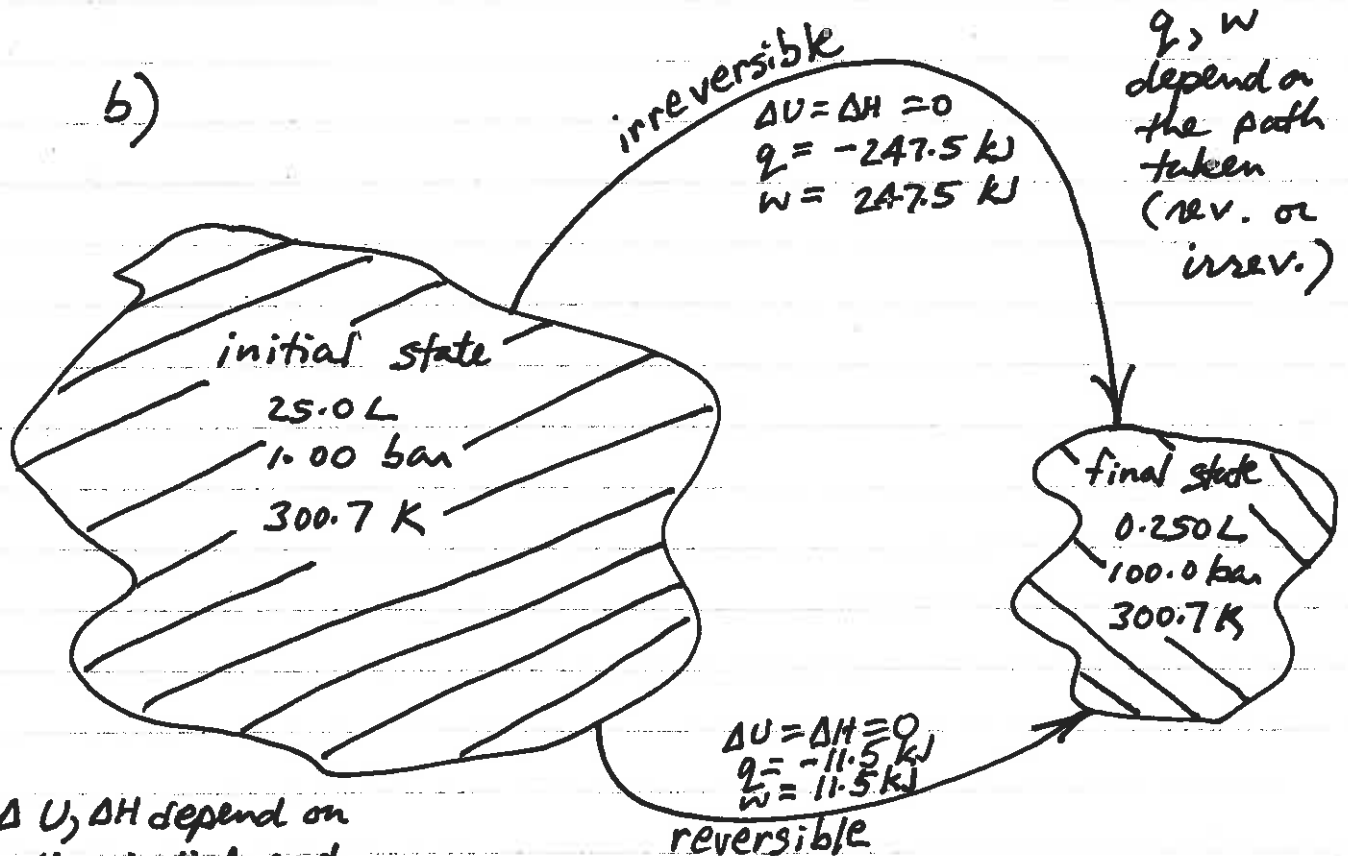 b)
irreversible
ΔU = ΔH = 0
q = -247.5 kJ
w = 247.5 kJ
q, w
depend on
the path
taken
(rev. or
irrev.)
initial state
25.0 L
1.00 bar
300.7 K
final state
0.250 L
100.0 bar
300.7 K
ΔU = ΔH = 0
q = -11.5 kJ
w = 11.5 kJ
reversible
ΔU, ΔH depend on